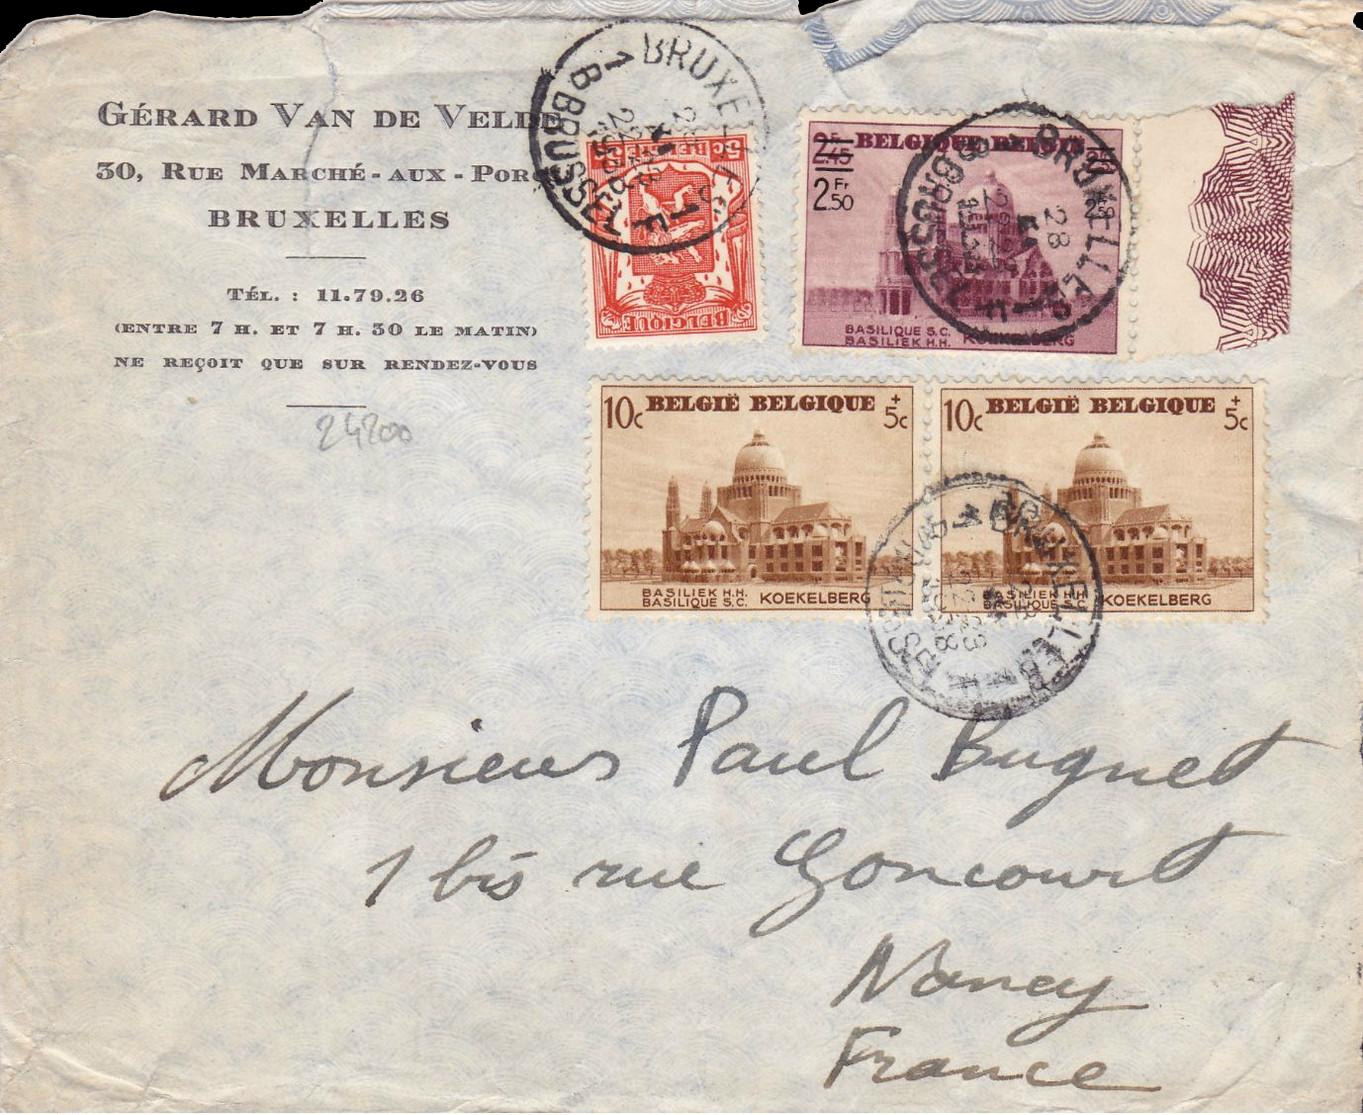 GÉRARD VAN DE VELDE
30, RUE MARCHÉ-AUX-PORC
BRUXELLES
TÉL. : 11.79.26
(ENTRE 7 H. ET 7 H. 30 LE MATIN)
NE REÇOIT QUE SUR RENDEZ-VOUS
24200
BRUXELLES 1
1 B BRUSSEL
5c BELGIË 5c
BELGIQUE
BELGIQUE BELGIË
2.45
2 Fr 50
BASILIQUE S.C.
BASILIEK H.H. KOEKELBERG
BRUXELLES
BRUSSEL
28
10c BELGIË BELGIQUE + 5c
BASILIEK H.H.
BASILIQUE S.C. KOEKELBERG
10c BELGIË BELGIQUE + 5c
BASILIEK H.H.
BASILIQUE S.C. KOEKELBERG
BRUXELLES
Monsieur Paul Bugnet
1 bis rue Goncourt
Nancy
France